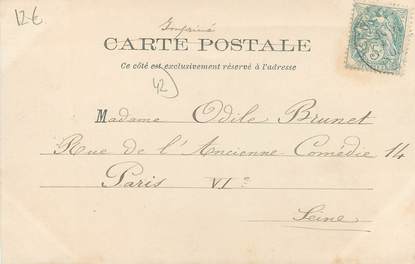 12€
Imprimé
CARTE POSTALE
Ce côté est exclusivement réservé à l'adresse
42
Madame Odile Brunet
Rue de l'Ancienne Comédie 14
Paris VIe
Seine
5